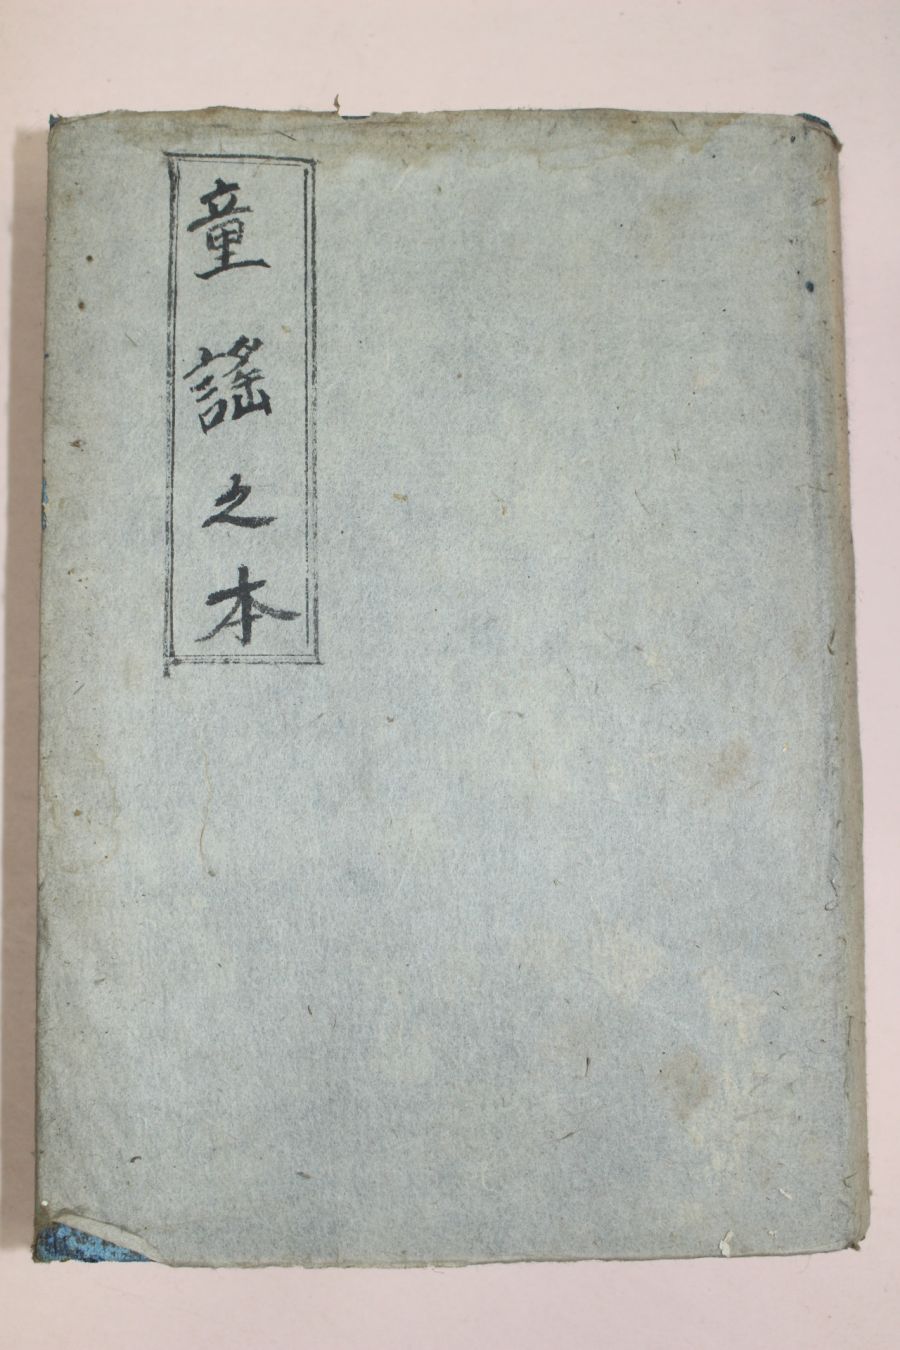 童謠之本